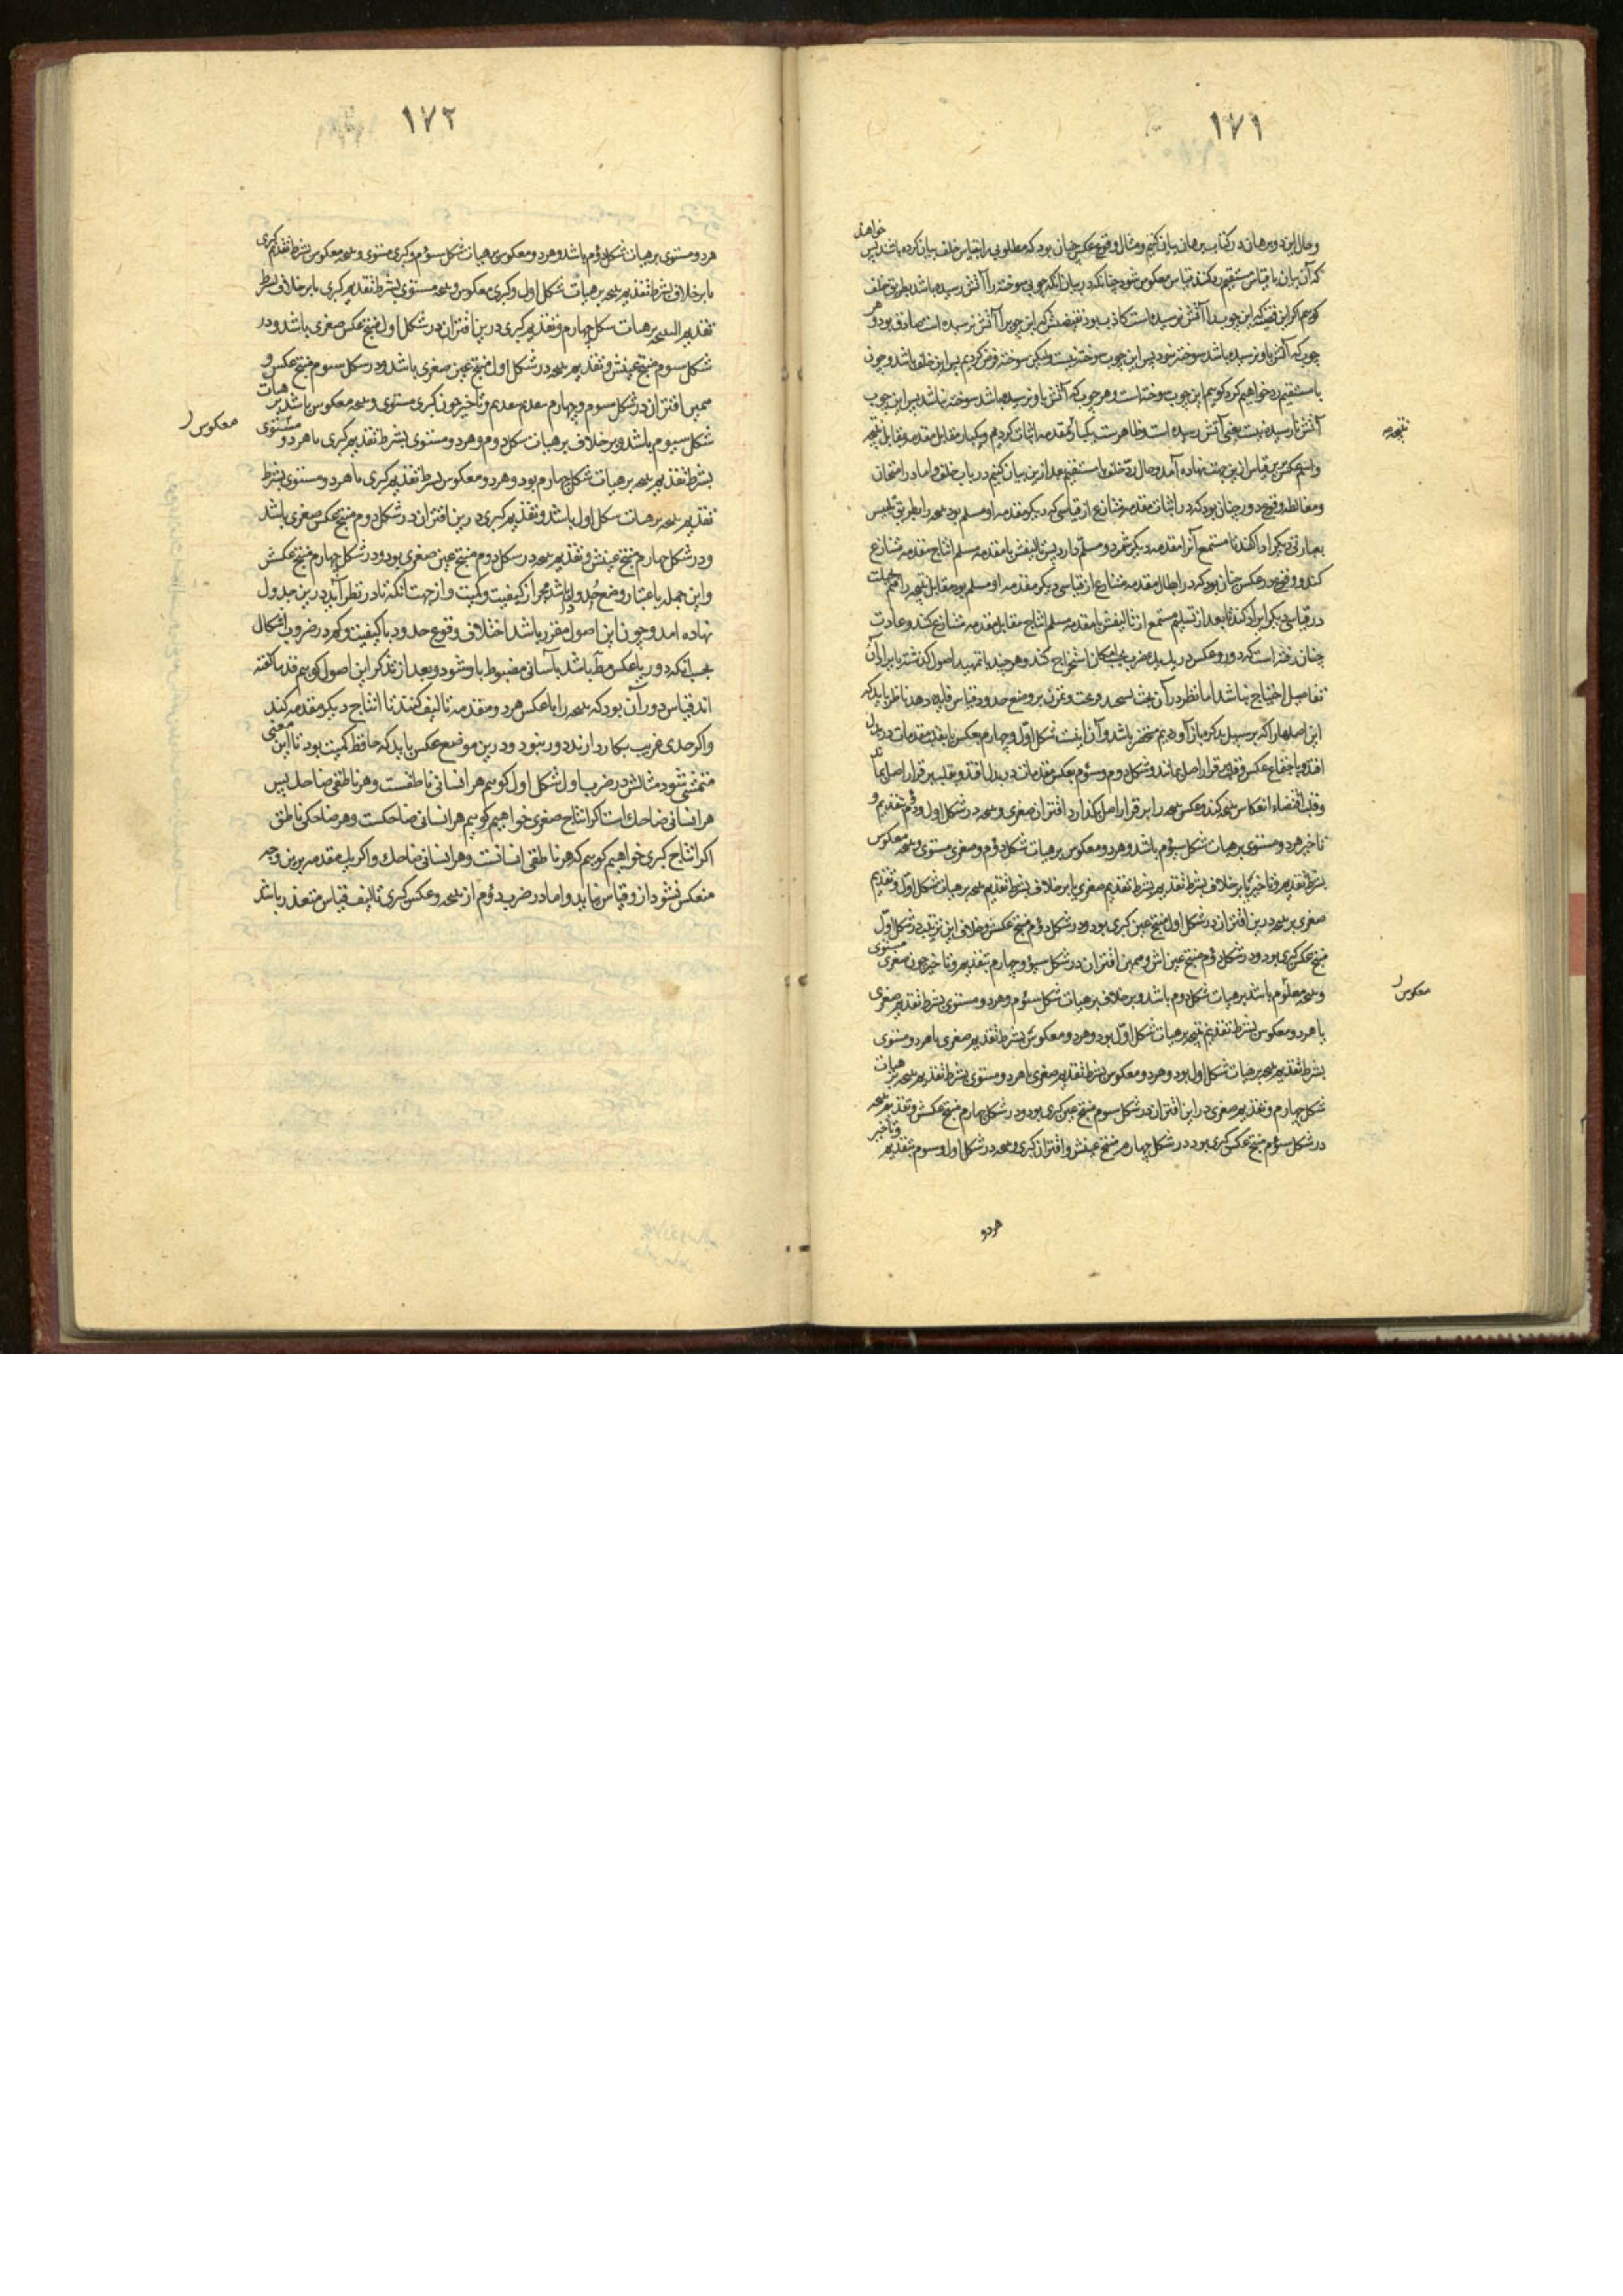 ۱۷۱
و حال این دو برهان در کتاب برهان بیان کنیم و مثال وقوع عکس چنان بود که مطلوبی را بقیاس خلف بیان کرده باشند پس خواهند
که آن بیان با قیاس مستقیم رد کنند قیاس معکوس شود چنانکه در بیان آنکه چوبی سوخته را آتش رسیده باشد بطریق خلف
کوییم اکر این قضیه که این چوب را آتش نرسیده است کاذب بود نقیضش که این چوب را آتش نرسیده است صادق بود و هر
چوب که آتش باو نرسیده باشد سوخته نبود پس این چوب سوخته نیست ولیکن سوخته فرض کردیم پس این خلف باشد و چون
با مستقیم رد خواهیم کرد کوییم این چوب سوخته است و هر چوب که آتش باو نرسیده باشد سوخته نباشد پس این چوب
آتش نارسیده نیست یعنی آتش رسیده است و ظاهرست که یکبار مقدمه اثبات کردیم و یکبار مقابل مقدمه و مقابل نتیجه
و اسم عکس برین قیاس ازین جهت نهاده آمد و حال رد خلف با مستقیم بعد ازین بیان کنیم در باب خلف و اما در امتحان
و مغالطه وقوع دور چنان بود که در اثبات مقدمه متنازع از قیاسی که دیکر مقدمه او مسلم بود نتیجه را بطریق تلبیس
بعبارتی دیکر ادا کنند تا مستمع آنرا مقدمه دیکر شمرد و مسلم دارد پس تالیفش با مقدمه مسلم انتاج مقدمه متنازع
کند و وقوع عکس چنان بود که در ابطال مقدمه متنازع از قیاسی دیکر مقدمه او مسلم بود مقابل نتیجه را هم بحیلت
در قیاسی دیکر ایراد کند تا بعد از تسلیم مستمع از تالیفش با مقدمه مسلم انتاج مقابل مقدمه متنازع کند و عادت
چنان رفته است که دور و عکس در یک یک ضرب بحسب امکان استخراج کند و هر چند با تمهید اصول کذشته بایراد آن
تفاصیل احتیاج نباشد اما نظر در آن بحث
این اصلها را که بر سبیل تذکر باز آوردیم مختصر باشد و آن اینست شکل اول و چهارم بعکس یا بقلب مقدمات در بدل
افتد و باجتماع عکس و قلب بر قرار اصل بماند و شکل دوم و سوم بعکس مقدمات در بدل افتد و بقلب بر قرار اصل بماند
وقلب اقتضاء انعکاس نتیجه کند و عکس نتیجه را بر قرار اصل بکذارد اقتران صغری و نتیجه در شکل اول و دوم بتقدیم و
تاخیر هر دو مستوی بر هیات شکل سوم باشد و هر دو معکوس بر هیات شکل دوم و صغری مستوی و نتیجه معکوس
بشرط تقدیم و تاخیر یا بر خلاف بشرط تقدیم بشرط تقدیم صغری یا بر خلاف بشرط تقدیم نتیجه بر هیات شکل اول و تقدیم
صغری بر نتیجه درین اقتران در شکل اول منتج عین کبری بود و در شکل دوم منتج عکسش و خلاف این ترتیب در شکل اول
منتج عکس کبری بود و در شکل دوم منتج عین اش و همین اقتران در شکل سوم و چهارم بتقدیم و تاخیر چون صغری مستوی
و نتیجه معکوس باشد بر هیات شکل دوم باشد و بر خلاف بر هیات شکل سوم و هر دو مستوی بشرط تقدیم صغری
یا هر دو معکوس بشرط تقدیم نتیجه بر هیات شکل اول بود و هر دو معکوس بشرط تقدیم صغری یا هر دو مستوی
بشرط تقدیم نتیجه بر هیات شکل اول بود و هر دو معکوس بشرط تقدیم صغری یا هر دو مستوی بشرط تقدیم نتیجه بر هیات
شکل چهارم و تقدیم صغری در این اقتران در شکل سوم منتج عین کبری بود و در شکل چهارم منتج عکسش و تقدیم نتیجه
در شکل سوم منتج عکس کبری بود در شکل چهارم منتج عینش و اقتران کبری و نتیجه در شکل اول و سوم بتقدیم و تاخیر
هر دو
نتیجه
معکوس
۱۷۲
هر دو مستوی بر هیات شکل دوم باشد و هر دو معکوس بر هیات شکل سوم و کبری مستوی و نتیجه معکوس بشرط تقدیم کبری
یا بر خلاف بشرط تقدیم نتیجه بر هیات شکل اول و کبری معکوس و نتیجه مستوی بشرط تقدیم کبری یا بر خلاف بشرط
تقدیم النتیجه بر هیات شکل چهارم و تقدیم کبری درین اقتران در شکل اول منتج عکس صغری باشد و در
شکل سوم منتج عینش و تقدیم نتیجه در شکل اول منتج عین صغری باشد و در شکل سوم منتج عکس و
همین اقتران در شکل سوم و چهارم بتقدیم و تاخیر چون کبری مستوی و نتیجه معکوس باشد بر هیات
شکل سیوم باشد و بر خلاف بر هیات شکل دوم و هر دو مستوی بشرط تقدیم کبری یا هر دو مستوی
بشرط تقدیم نتیجه بر هیات شکل چهارم بود و هر دو معکوس بشرط تقدیم کبری یا هر دو مستوی بشرط
تقدیم نتیجه بر هیات شکل اول باشد و تقدیم کبری درین اقتران در شکل دوم منتج عکس صغری باشد
و در شکل چهارم منتج عینش و تقدیم نتیجه در شکل دوم منتج عین صغری بود و در شکل چهارم منتج عکسش
و این جمله باعتبار وضع حدود باشد مجرد از کیفیت و کمیت و از جهت آنکه تا در نظر آید درین جدول
نهاده امد و چون این اصول مقرر باشد اختلاف وقوع حدود با کیفیت و کم در ضروب اشکال
بحسب انکه دور یا عکس مطلوب باشد بآسانی مضبوط باو شود و بعد از تذکر این اصول کوییم قدما کفته
اند قیاس دور آن بود که نتیجه را با عکس هر دو مقدمه تالیف کنند تا انتاج دیکر مقدمه کند
و اکر حدی غریب بکار دارند دور نبود و درین موضع عکس باید که حافظ کمیت بود تا این معنی
متمشی شود مثالش در ضرب اول شکل اول کوییم هر انسانی ناطقست و هر ناطقی ضاحک پس
هر انسانی ضاحک است اکر انتاج صغری خواهیم کوییم هر انسانی ضاحکست و هر ضاحکی ناطق
اکر انتاج کبری خواهیم کوییم که هر ناطقی انسانست و هر انسانی ضاحک و اکر یک مقدمه برین وجه
منعکس نشود از و قیاس نیاید و اما در ضرب دوم از نتیجه و عکس کبری تالیف قیاس متعذر باشد
معکوس